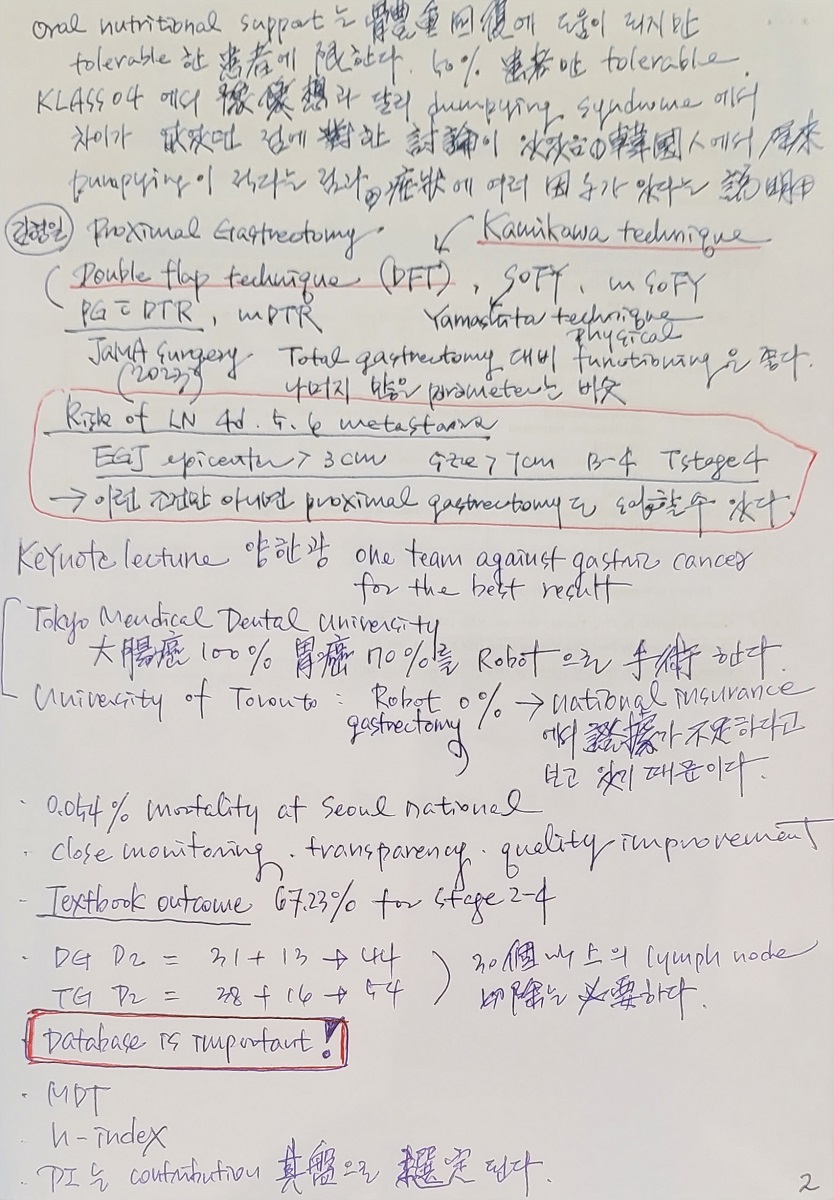 Oral nutritional support는 體重回復에 도움이 되지만
tolerable 한 患者에 限한다. 50% 患者만 tolerable.
KLASS04 에서 豫想과 달리 dumpying syndrome 에서
차이가 없었던 점에 對한 討論이 있었음 ① 韓國人에서 原來
dumpying이 적다는 점과 ② 症狀에 여러 因子가 있다는 說明
김형일 Proximal Gastrectomy. Kamikawa technique
( Double flap technique (DFT), SOFY, mSOFY
PG c̄ DTR, mDTR Yamashita technique
JAMA Surgery. Total gastrectomy 대비 physical functioning은 좋다.
(2023) 나머지 많은 prometer는 비슷
Risk of LN 4d. 5. 6 metastasis
EGJ epicenter > 3cm size > 7cm B-4 T stage 4
→ 이런 조건만 아니면 proximal gastrectomy도 할 수 있다.
Keynote lecture 양한광 one team against gastric cancer
for the best result
Tokyo Mendical Dental University
大腸癌 100% 胃癌 70%를 Robot으로 手術한다.
University of Toronto : Robot 0% → national insurance
gastrectomy 에서 證據가 不足하다고
보고 있기 때문이다.
· 0.054% mortality at Seoul national
· close monitoring. transparency. quality improvement
· Textbook outcome 67.23% for stage 2-4
· DG D2 = 31 + 13 → 44 ) 30個 以上의 lymph node
TG D2 = 38 + 16 → 54 切除는 必要하다.
Database is important!
· MDT
· h-index
· PI는 contribution 其盤으로 選定 된다.
2